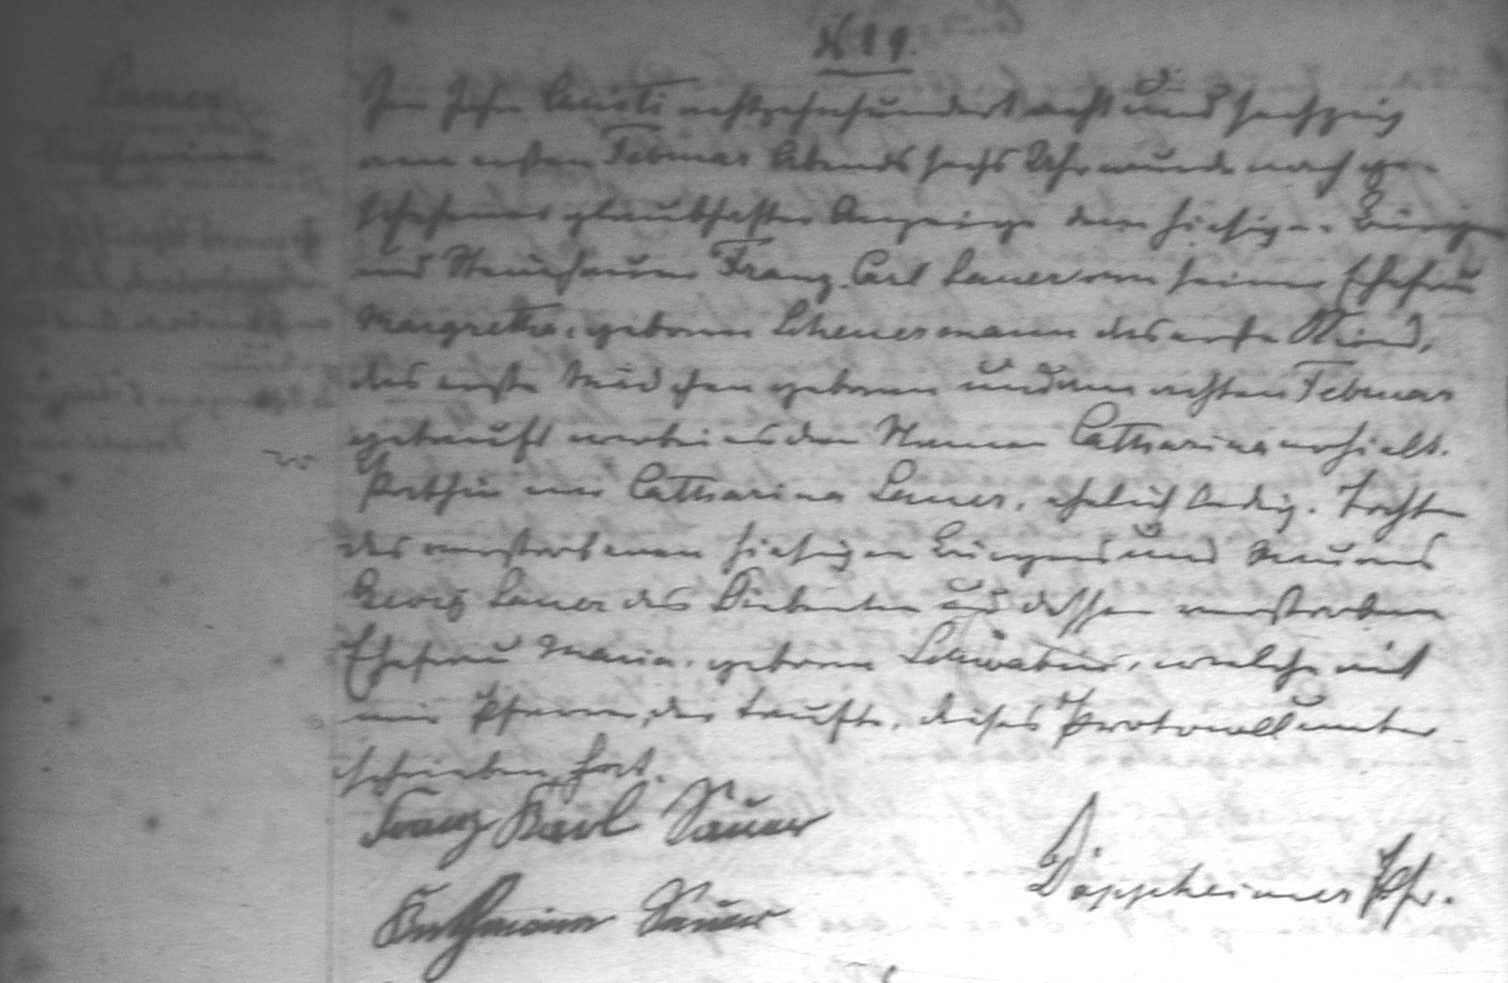 № 19.
Im Jahr Christi achtzehnhundert acht und sechzig
am ersten Februar Abends sechs Uhr wurde nach ge-
schehener glaubhafter Anzeige dem hiesigen Bürger
und Steinhauer Franz Carl Sauer von seiner Ehefrau
Margretha, geborene Scheuermann das erste Kind,
das erste Mädchen geboren und am achten Februar
getauft wobei es den Namen Catharina erhielt.
Pathin war Catharina Sauer, ehelich ledig. Tochter
des verstorbenen hiesigen Bürgers und Maurers
Georg Sauer des Siebenten und dessen verstorbenen
Ehefrau Maria, geborene, welche mit
mir Pfarrer, der taufte, dieses Protocoll unter
schrieben hat.
Sauer
Catharina
Franz Karl Sauer
Katharina Sauer
Döppheimer Pfr.